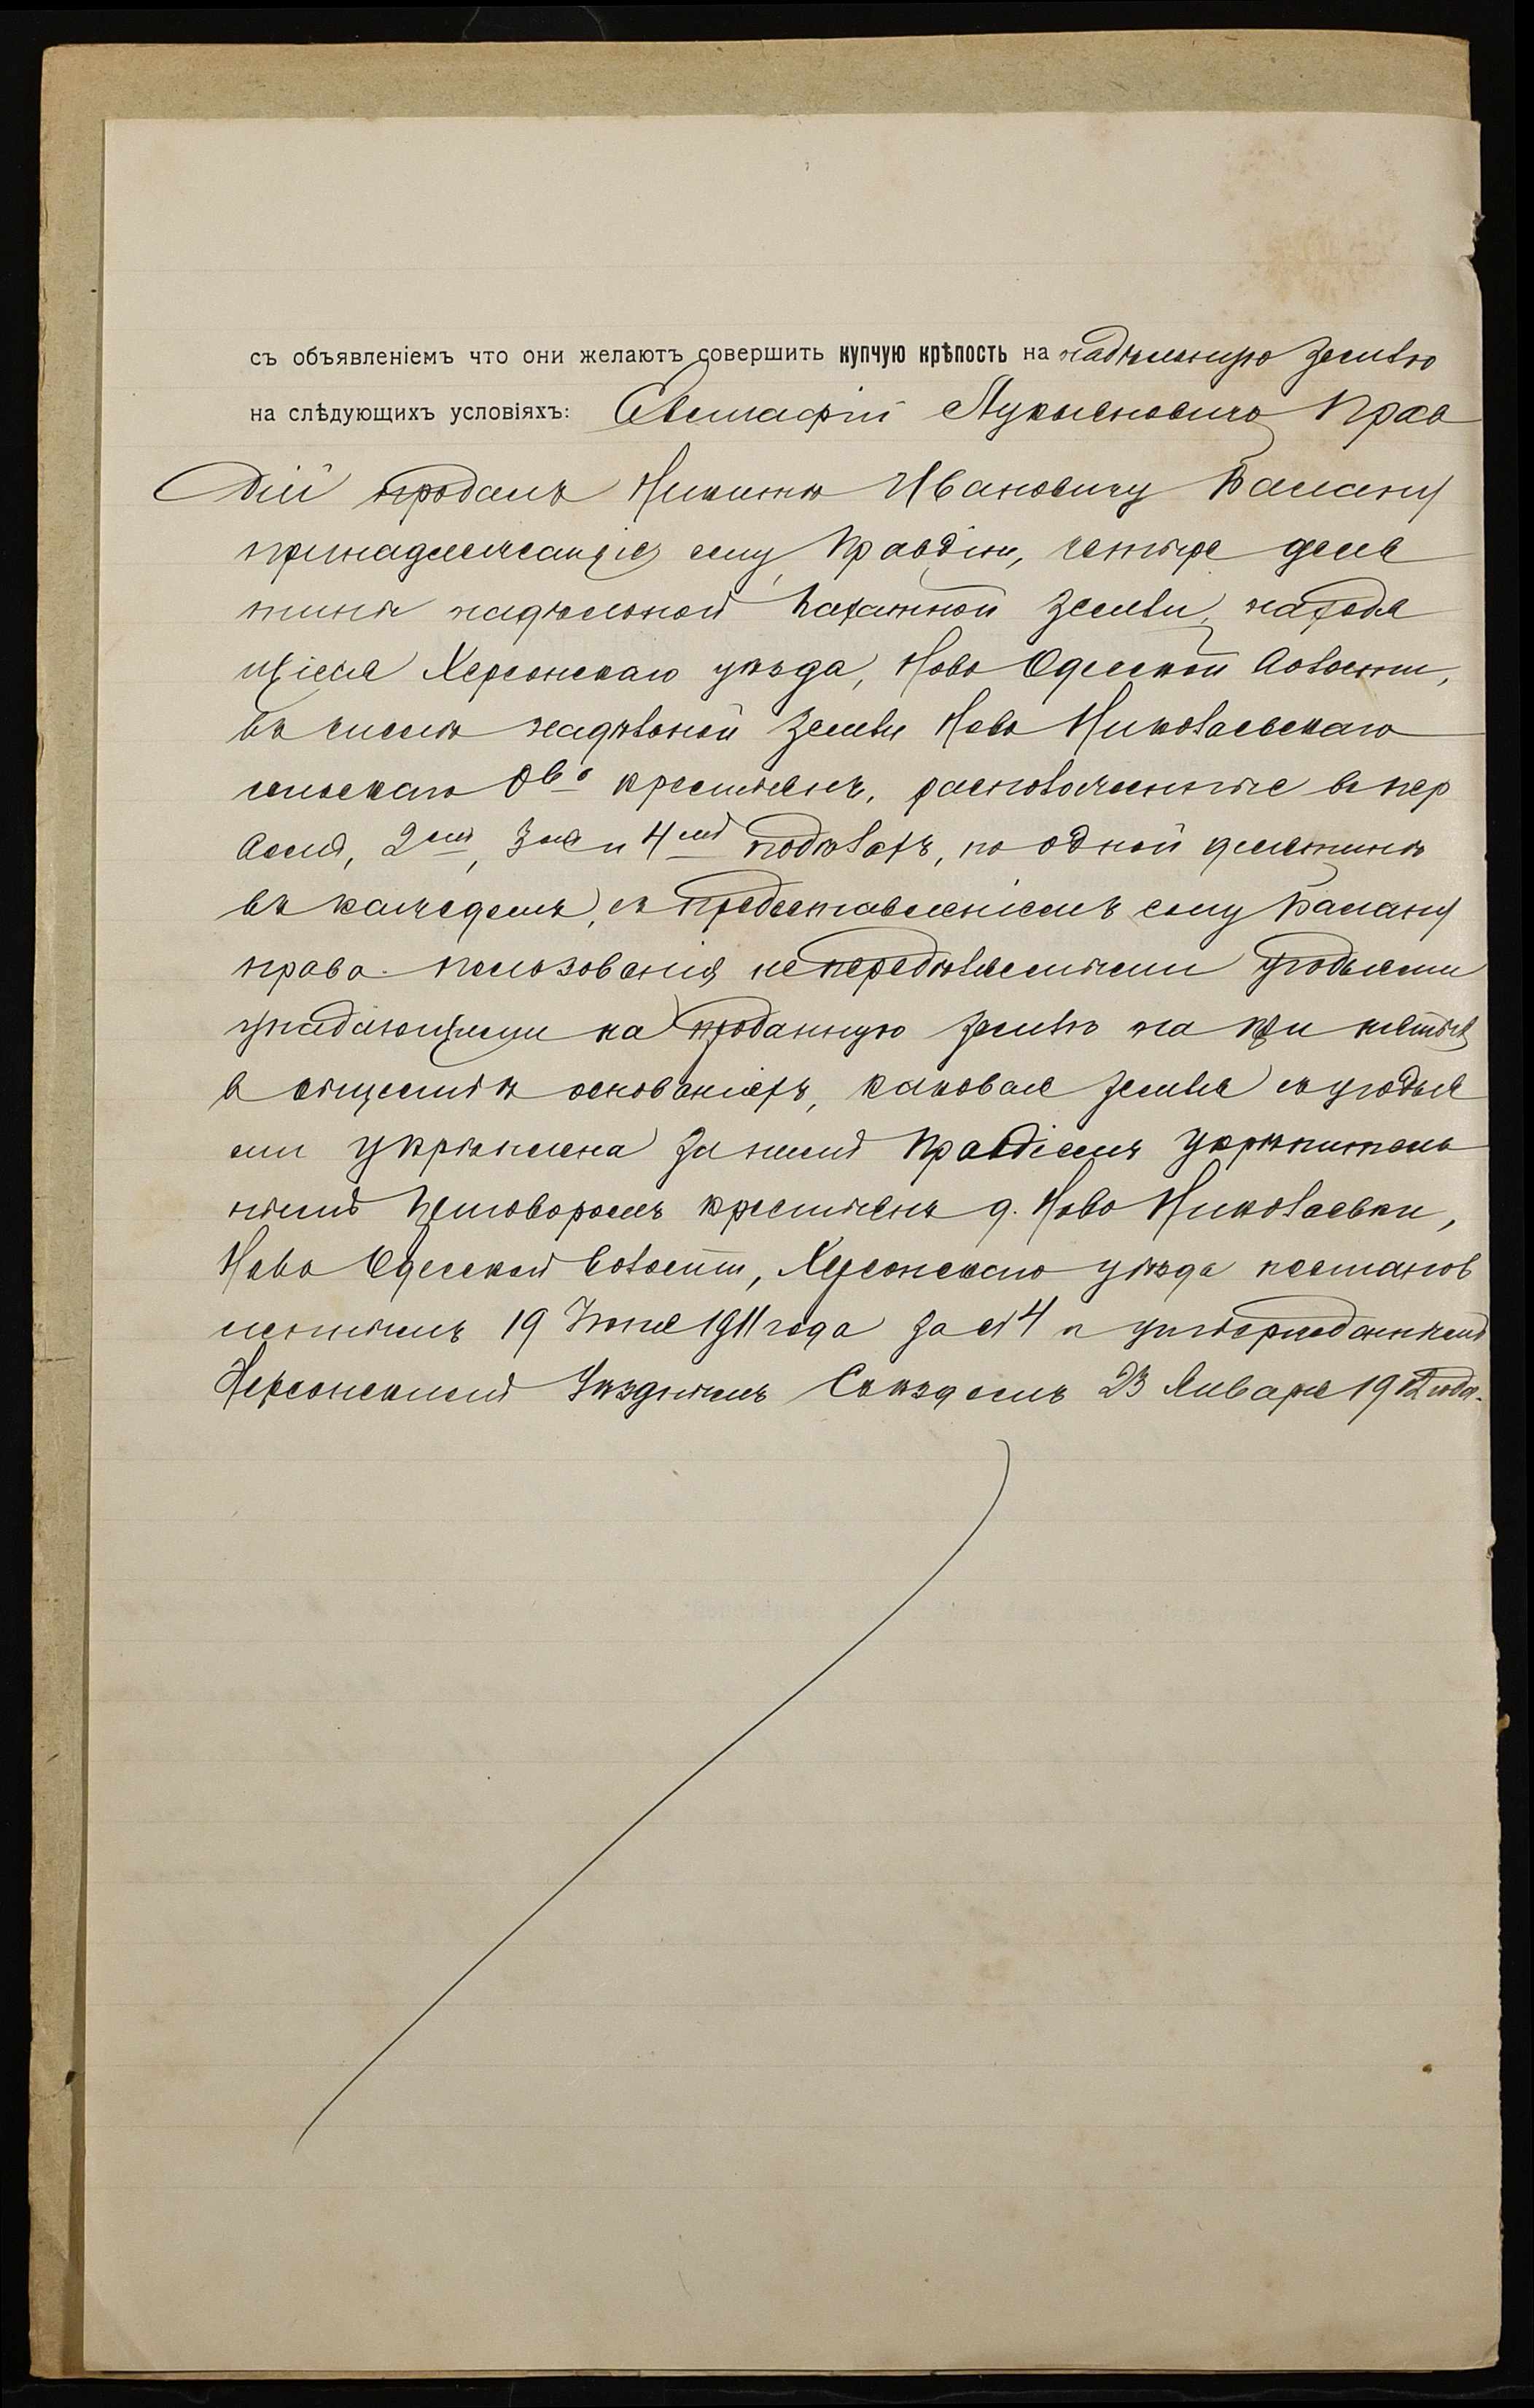 съ объявленіемъ что они желаютъ совершить купчую крѣпость на надѣльную землю
на слѣдующихъ условіяхъ: Евстафій Лукьяновичъ Прав
дій продалъ Никитѣ Ивановичу Балану
принадлежащіе ему, Правдію, четыре деся
тины надѣльной пахатной земли, находя
щіеся Херсонскаго уѣзда, Ново Одесской волости,
въ числѣ надѣльной земли Ново Николаевскаго
сельскаго Об-ва крестьянъ, расположенные въ пер
вомъ, 2омъ, 3мъ и 4мъ подѣлахъ, по одной десятинѣ
въ каждомъ, съ предоставленіемъ ему Балану
права пользованія не передѣляемыми угодьями
упадающими на проданную землю на
въ основаніяхъ, каковая земля съ угодья
ми укрѣплена за нимъ Правдіемъ укрѣпитель
нымъ приговоромъ крестьянъ д. Ново Николаевки,
Ново Одесской волости, Херсонскаго уѣзда постанов
леннымъ 19 1911 года за № 4 и утвержденнымъ
Херсонскимъ Уѣзднымъ Съѣздомъ 23 Января 1912 года.